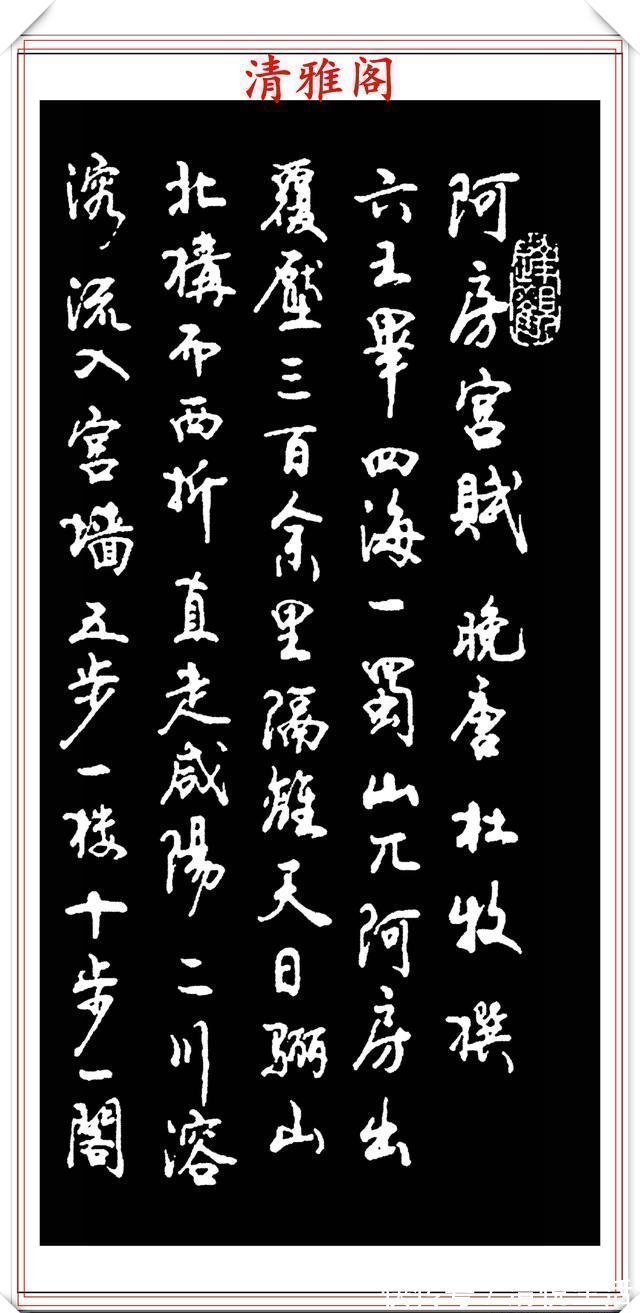 清雅阁
阿房宫賦 晚唐 杜牧 撰
六王畢四海一蜀山兀阿房出
覆壓三百余里隔離天日骊山
北構而西折直走咸陽二川溶
溶流入宫墙五步一楼十步一閣